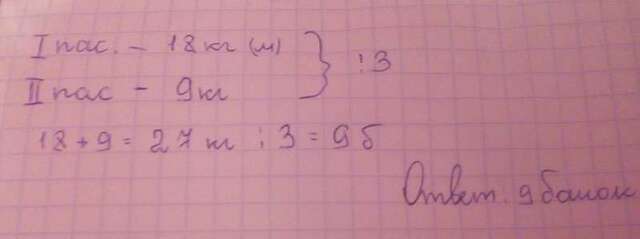 I пас. - 18 кг (м) } : 3
II пас - 9 кг
18 + 9 = 27 кг : 3 = 9 б
Ответ. 9 банок